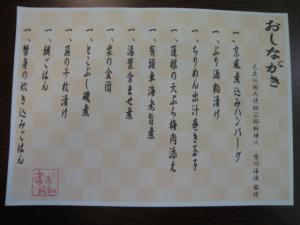 おしながき
一、京風煮込みハンバーグ
一、ぶり酒粕漬け
一、ちりめん出汁巻き玉子
一、蓮根の天ぷら梅肉添え
一、有頭車海老旨煮
一、湯葉含ませ煮
一、栗の金団
一、とこぶし磯煮
一、蕪の千枚漬け
一、鯛ごはん
一、蟹身の炊き込みごはん